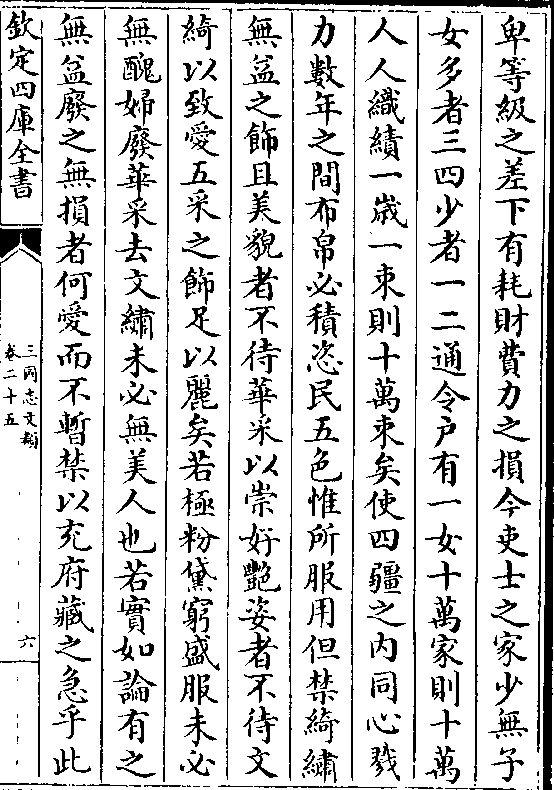 卑等級之差下有耗財費力之損今吏士之家少無子
女多者三四少者一二通令户有一女十萬家則十萬
人人織績一歲一束則十萬束矣使四疆之内同心戮
力數年之間布帛必積恣民五色惟所服用但禁綺繡
無益之飾且美貌者不待華采以崇好艷姿者不待文
綺以致愛五采之飾足以麗矣若極粉黛窮盛服未必
無醜婦廢華采去文繡未必無美人也若實如論有之
無益廢之無損者何愛而不暫禁以充府藏之急乎此
欽定四庫全書
三國志文類
卷二十五
六